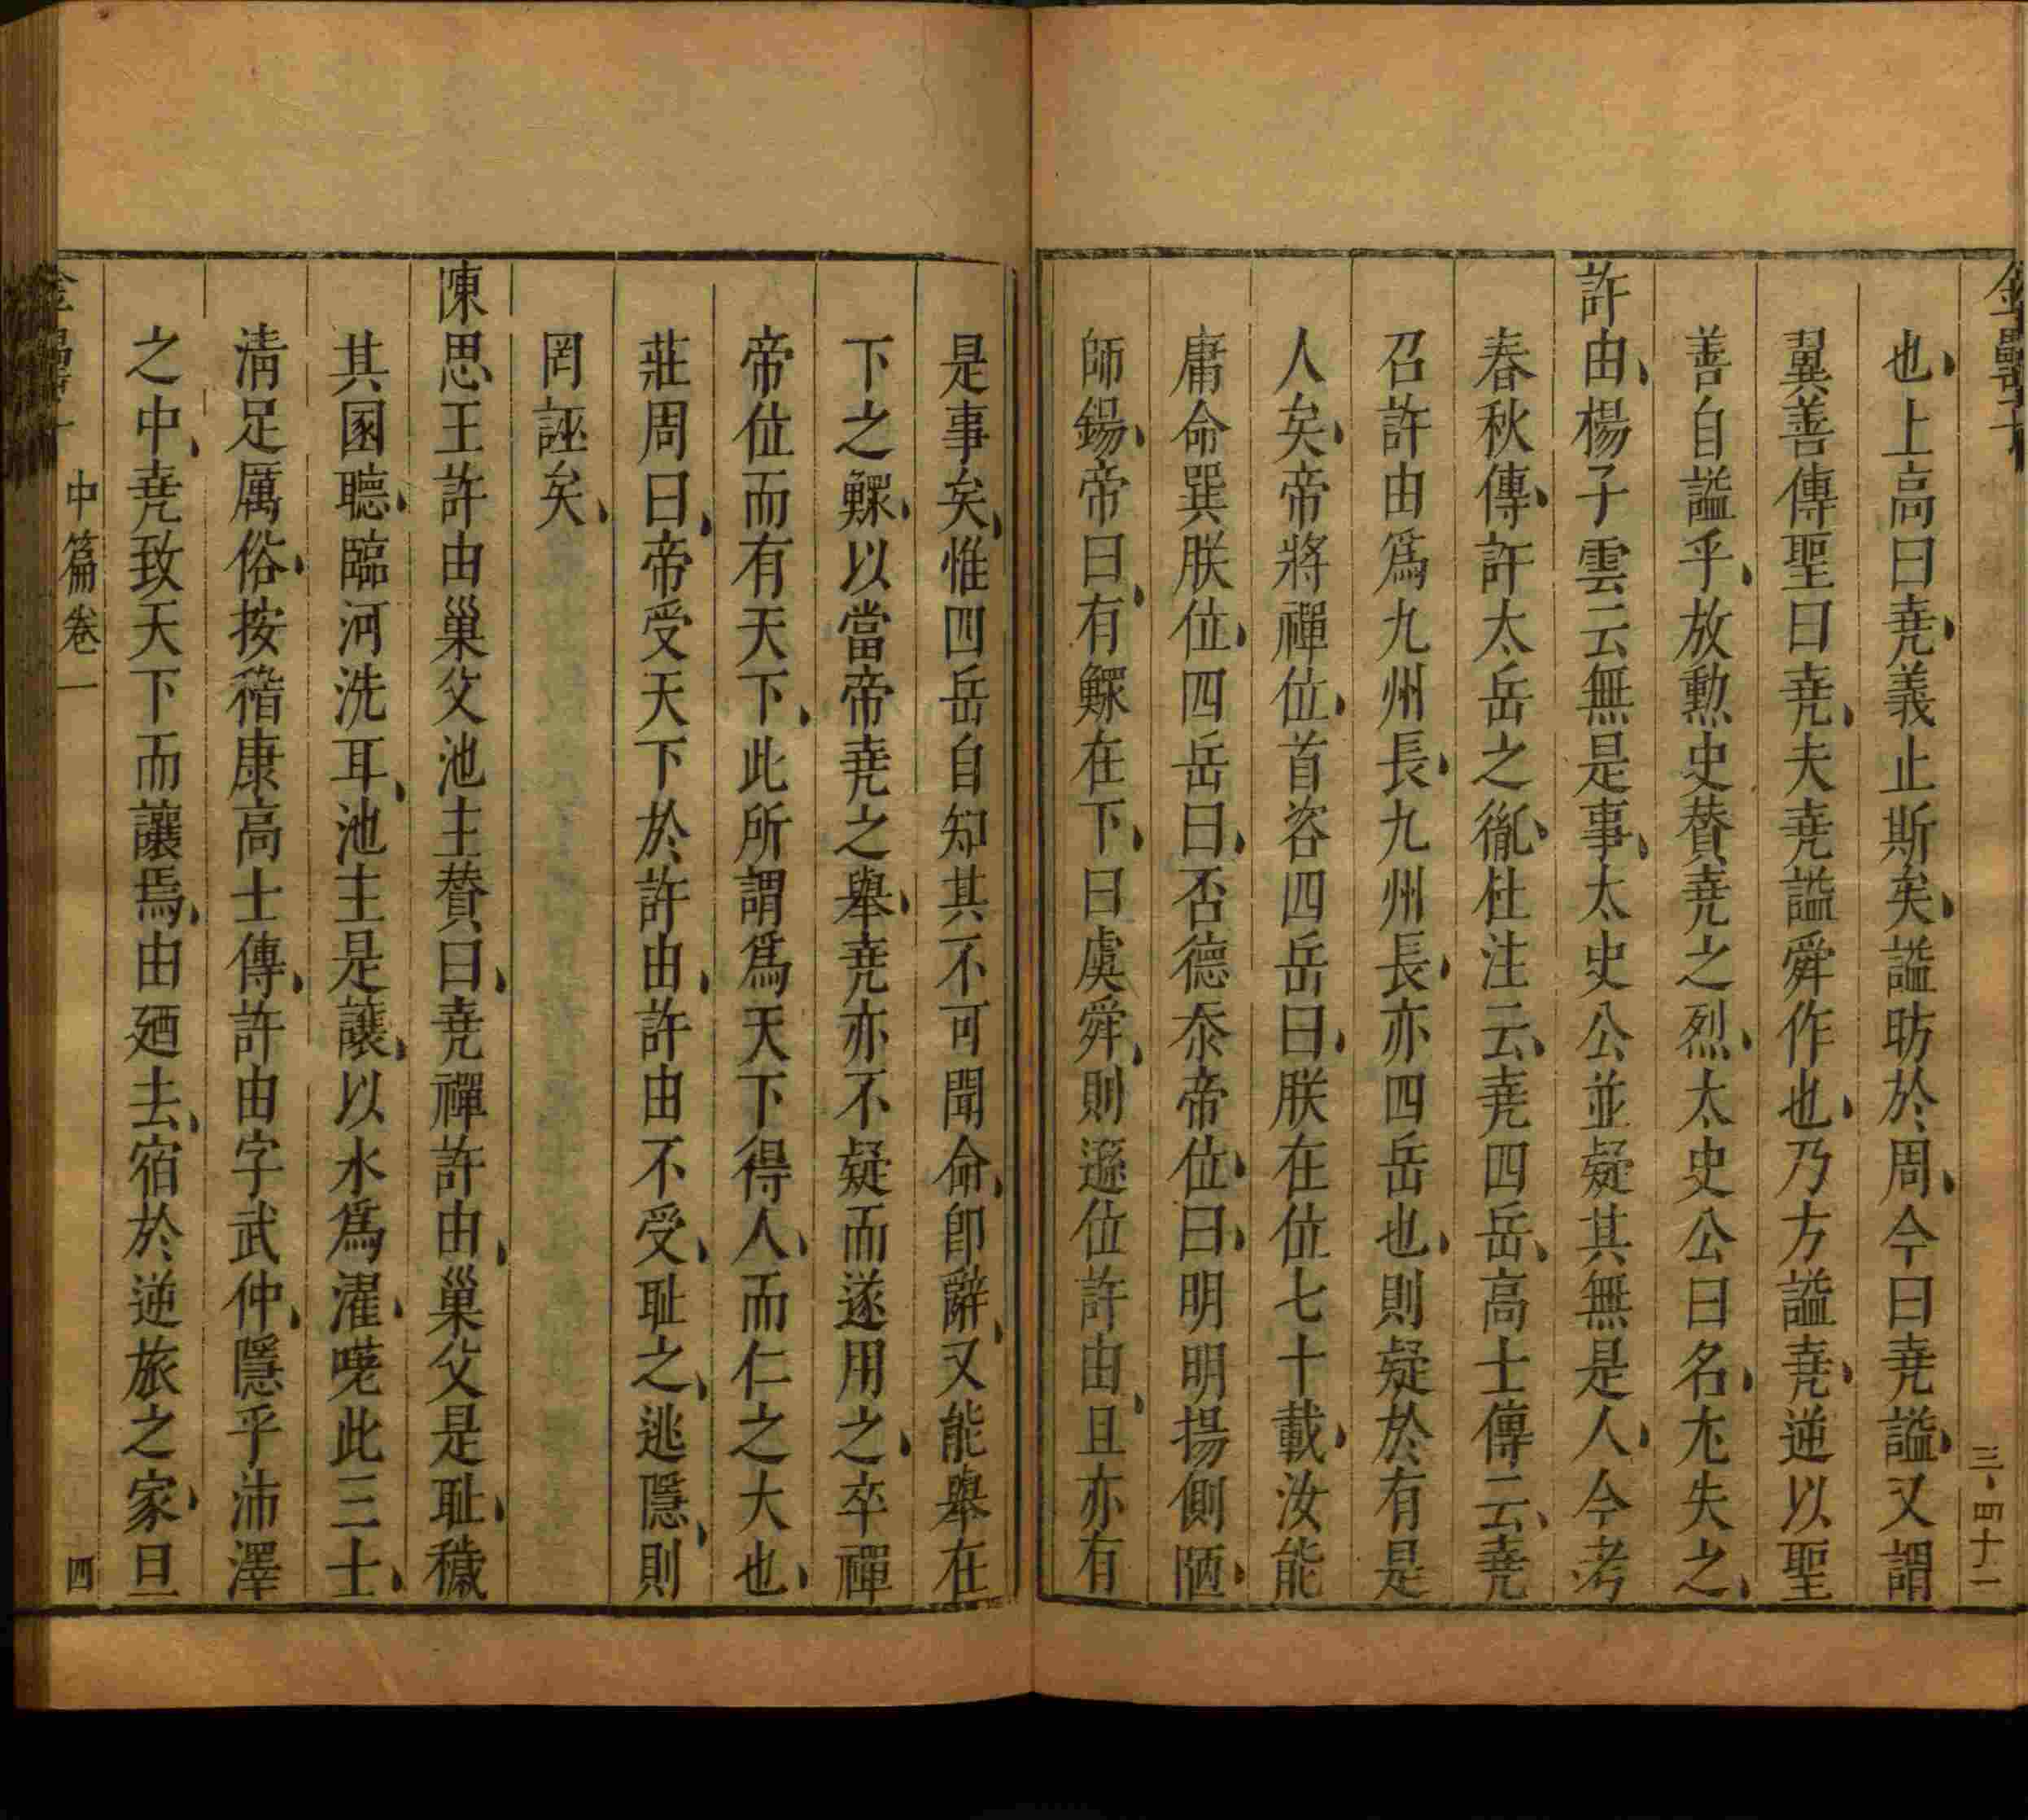 金罍子
三、四十二
也、上高曰堯、義止斯矣、謚昉於周、今曰堯謚、又謂
翼善傳聖曰堯、夫堯謚舜作也、乃方謚堯、逆以聖
善自謚乎、放勲史賛堯之烈、太史公曰名、尤失之、
許由、楊子雲云無是事、太史公並疑其無是人、今考
春秋傳、許太岳之㣧、杜注云、堯四岳、高士傳云、堯
召許由爲九州長、九州長、亦四岳也、則疑於有是
人矣、帝將禪位、首咨四岳曰、朕在位七十載、汝能
庸命巽朕位、四岳曰、否德忝帝位、曰、明明揚側陋、
師錫、帝曰、有鰥在下、曰虞舜、則遜位許由、且亦有
是事矣、惟四岳自知其不可聞命、卽辭、又能舉在
下之鰥、以當帝堯之舉、堯亦不疑而遂用之、卒禪
帝位而有天下、此所謂爲天下得人、而仁之大也、
莊周曰、帝受天下於許由、許由不受、耻之、逃隱、則
罔誣矣、
陳思王許由巢父池主賛曰、堯禪許由、巢父是耻、穢
其溷聽、臨河洗耳、池主是讓、以水爲濯、嗟此三士、
淸足厲俗、按嵇康高士傳、許由字武仲、隱乎沛澤
之中、堯致天下而讓焉、由廼去、宿於逆旅之家、旦
中篇卷一
四